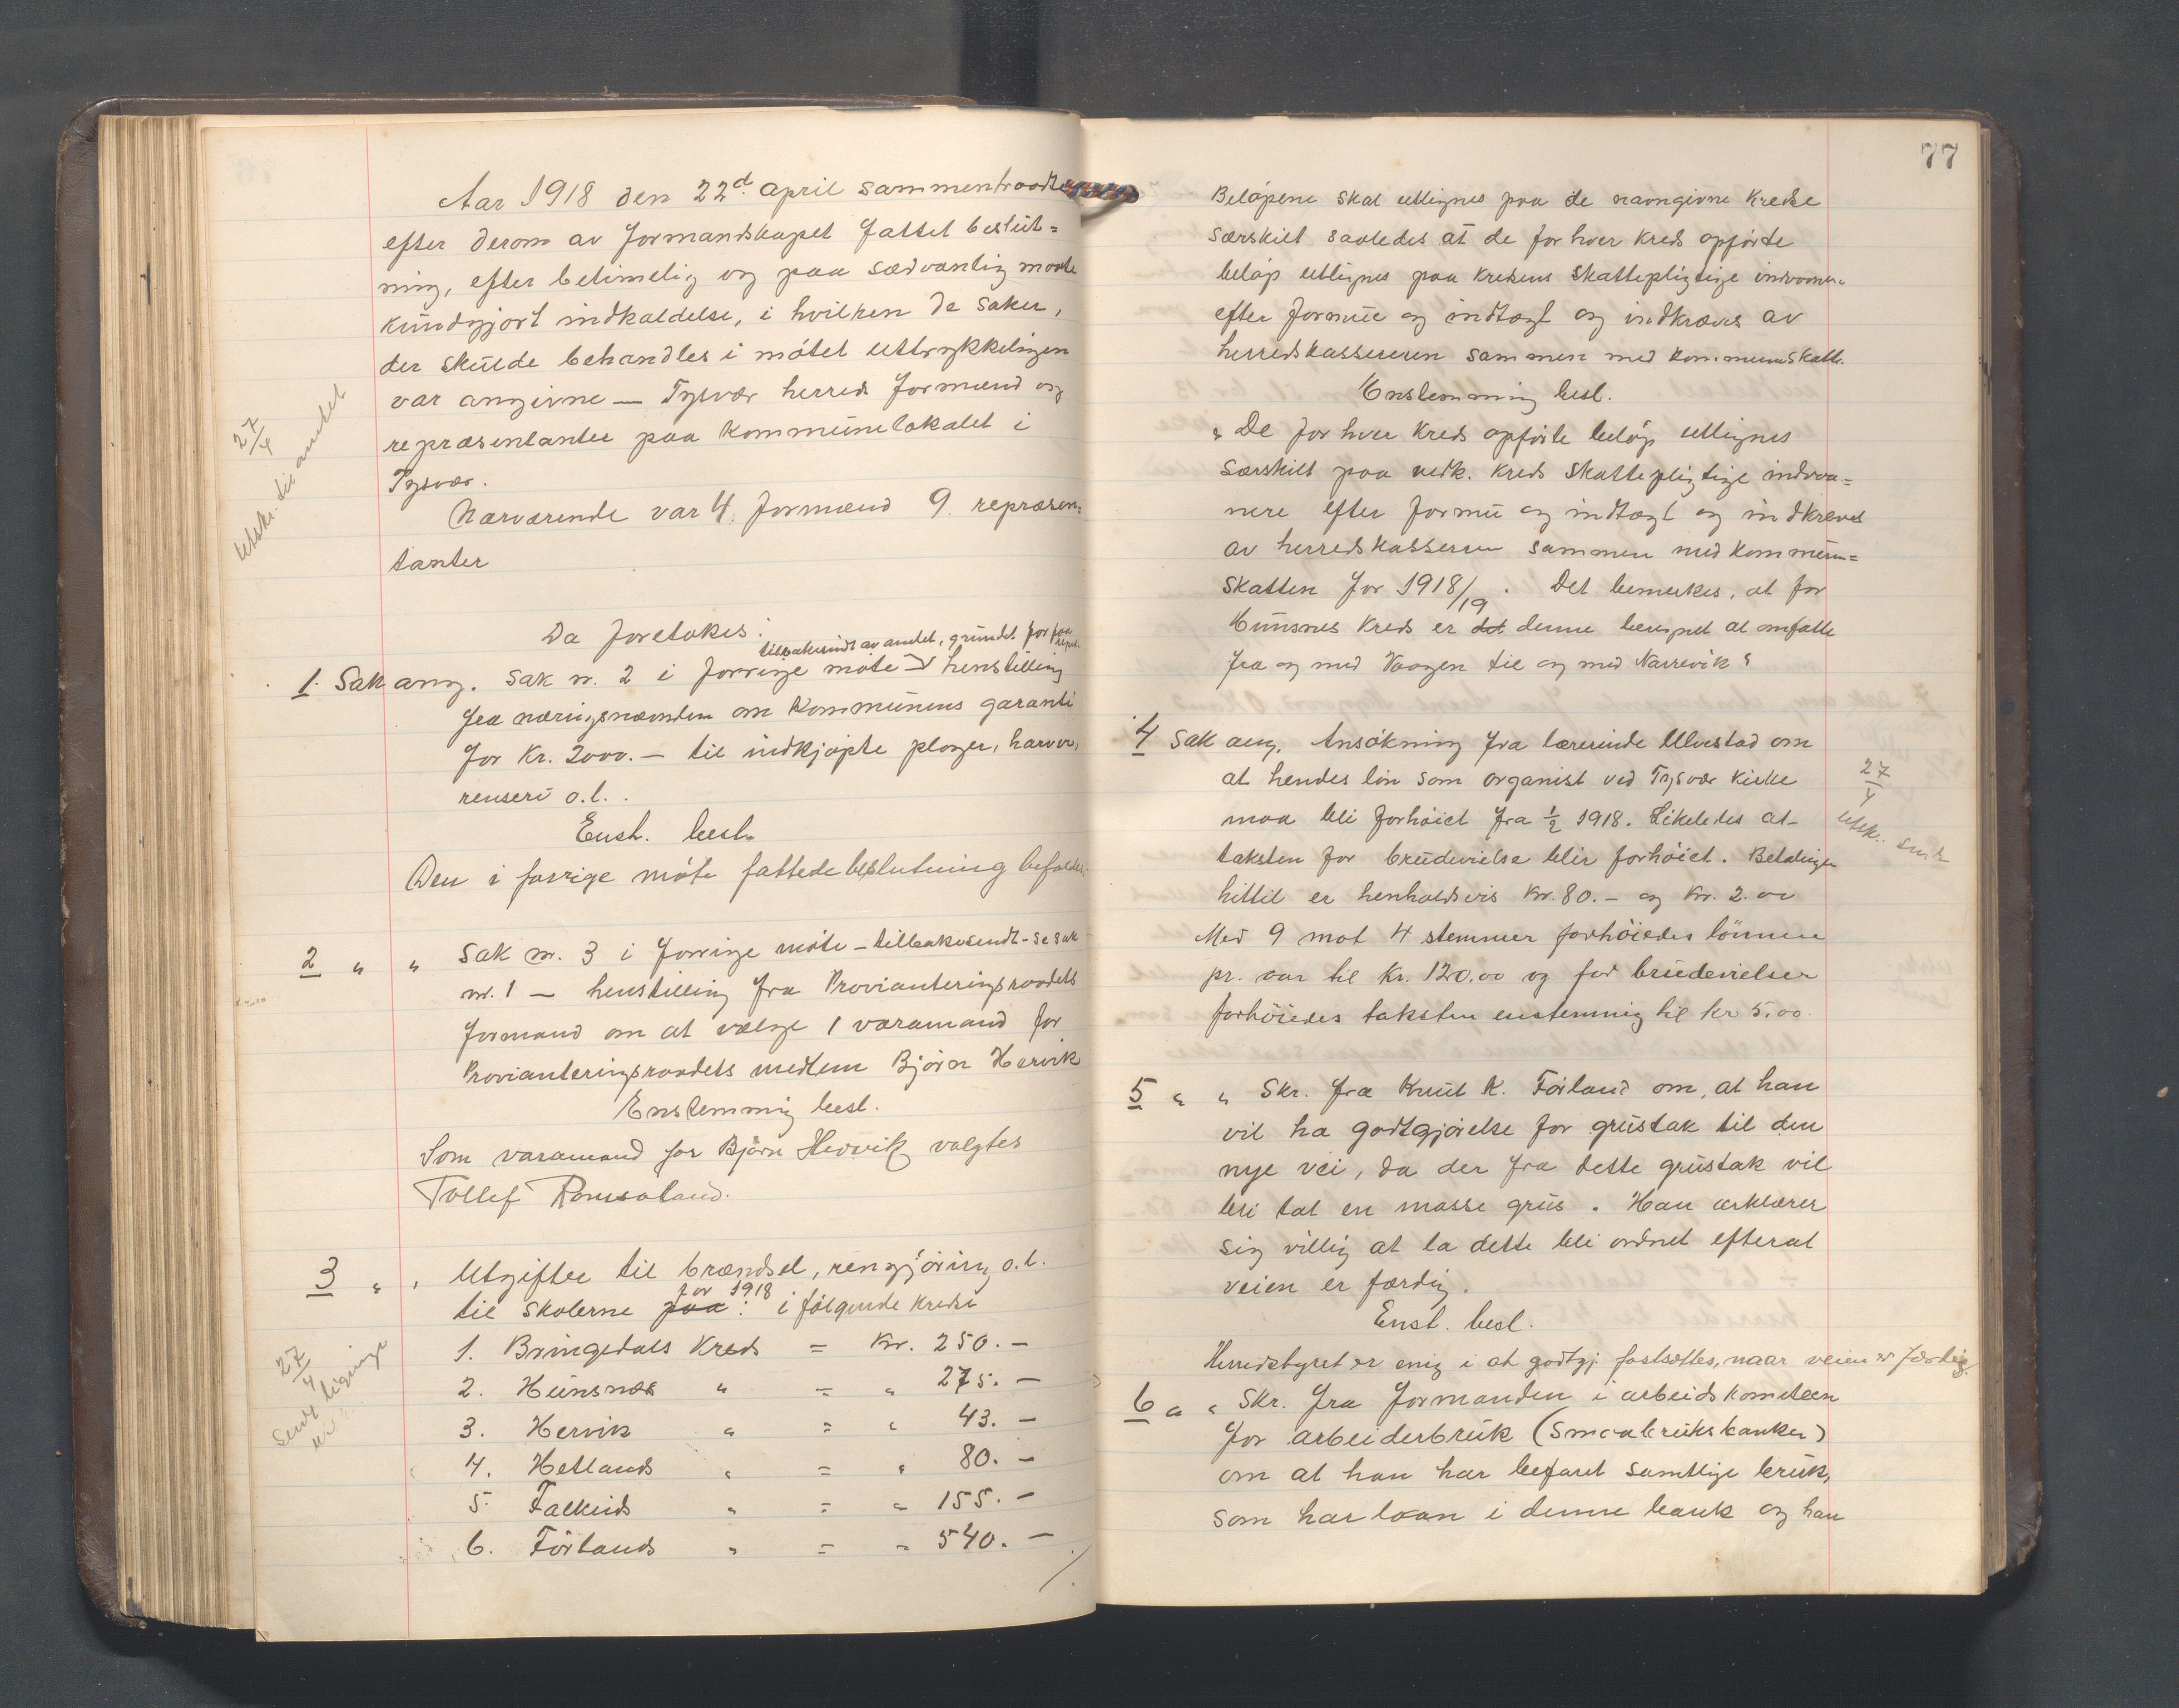 Aar 1918 den 22d april sammentraadte
efter derom av formandskapet fattet beslut=
ning, efter betimelig og paa sædvanlig maate
kundgjort indkaldelse, i hvilken de saker,
der skulde behandles i møtet uttrykkeligen
var angivne — Tysvær herreds formænd og
repræsentanter paa kommunelokalet i
Tysvær.
27/4
utskr. til amtet
Nærværende var 4 formænd 9 repræsen=
tanter
Da foretokes:
tilbakesendt av amtet, grundet for faa repr.
1. Sak ang. Sak nr. 2 i forrige møte henstilling
fra næringsnævnden om kommunens garanti
for kr. 2000.— til indkjøpte ploger, harver,
renseri o.l.
Enst. besl.
Den i forrige møte fattede beslutning befoldes.
2 " " Sak nr. 3 i forrige møte - tilbakesendt - se sak
nr. 1 — henstilling fra Provianteringsraadets
formand om at vælge 1 varamand for
Provianteringsraadets medlem Bjørn Hervik
Enstemmig besl.
Som varamand for Bjørn Hervik valgtes
Tollef Romsaland.
3 " " Utgifter til brændsel, rengjøring o.l.
til skolerne paa for 1918: i følgende kredse
27/4
Sendt ligninge
1. Bringedals Kreds = Kr. 250.—
2. Hunsnes " = " 275.—
3. Hervik " = " 43.—
4. Hetlands " = " 80.—
5. Falkeids " = " 155.—
6. Førlands " = " 540.—
./.
77
Beløpene skal utlignes paa de navngivne kredse
særskilt saaledes at de for hver kreds opførte
beløp utlignes paa kredsens skattepligtige indvaaner
efter formue og indtægt og indkræves av
herredskassereren sammen med kommuneskatt.
Enstemmig besl.
"De for hver kreds opførte beløp utlignes
særskilt paa vedk. kreds skattepligtige indvaa=
nere efter formu og indtægt og indkreves
av herredskasseren sammen med kommune=
skatten for 1918/19. Det bemerkes, at for
Hunsnes kreds er det denne beregnet at omfatte
fra og med Vaagen til og med Narrevik"
4 Sak ang. Ansøkning fra lærerinde Ulvestad om
at hendes løn som organist ved Tysvær kirke
maa bli forhøiet fra 1/2 1918. Likeledes at
taksten for brudevielse blir forhøiet. Betalingen
hittil er henholdsvis kr. 80.— og kr. 2.00
27/4
utsk. sendt
Med 9 mot 4 stemmer forhøiedes lønnen
pr. aar til kr. 120.00 og for brudevielser
forhøiedes taksten enstemmig til kr 5.00
5 " " Skr. fra Knut K. Førland om, at han
vil ha godtgjørelse for grustak til den
nye vei, da der fra dette grustak vil
bli tat en masse grus. Han ærklærer
sig villig at la dette bli ordnet efterat
veien er færdig.
Enst. besl.
Herredstyret er enig i at godtgj. fastsættes, naar veien er færdig.
6 " " Skr. fra formanden i arbeidskomiteen
for arbeiderbruk (Smaabruksbanken)
om at han har befaret samtlige bruk,
som har laan i denne bank og han